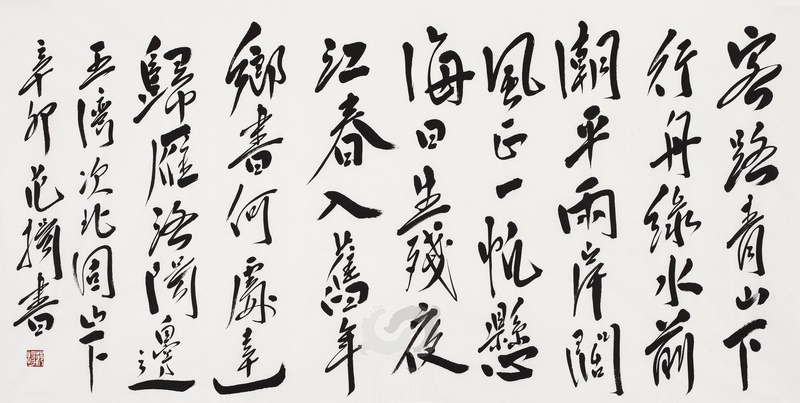 客路青山下
行舟綠水前
潮平兩岸闊
風正一帆懸
海日生殘夜
江春入舊年
鄉書何處達
歸雁洛陽邊
王灣次北固山下
辛卯范書